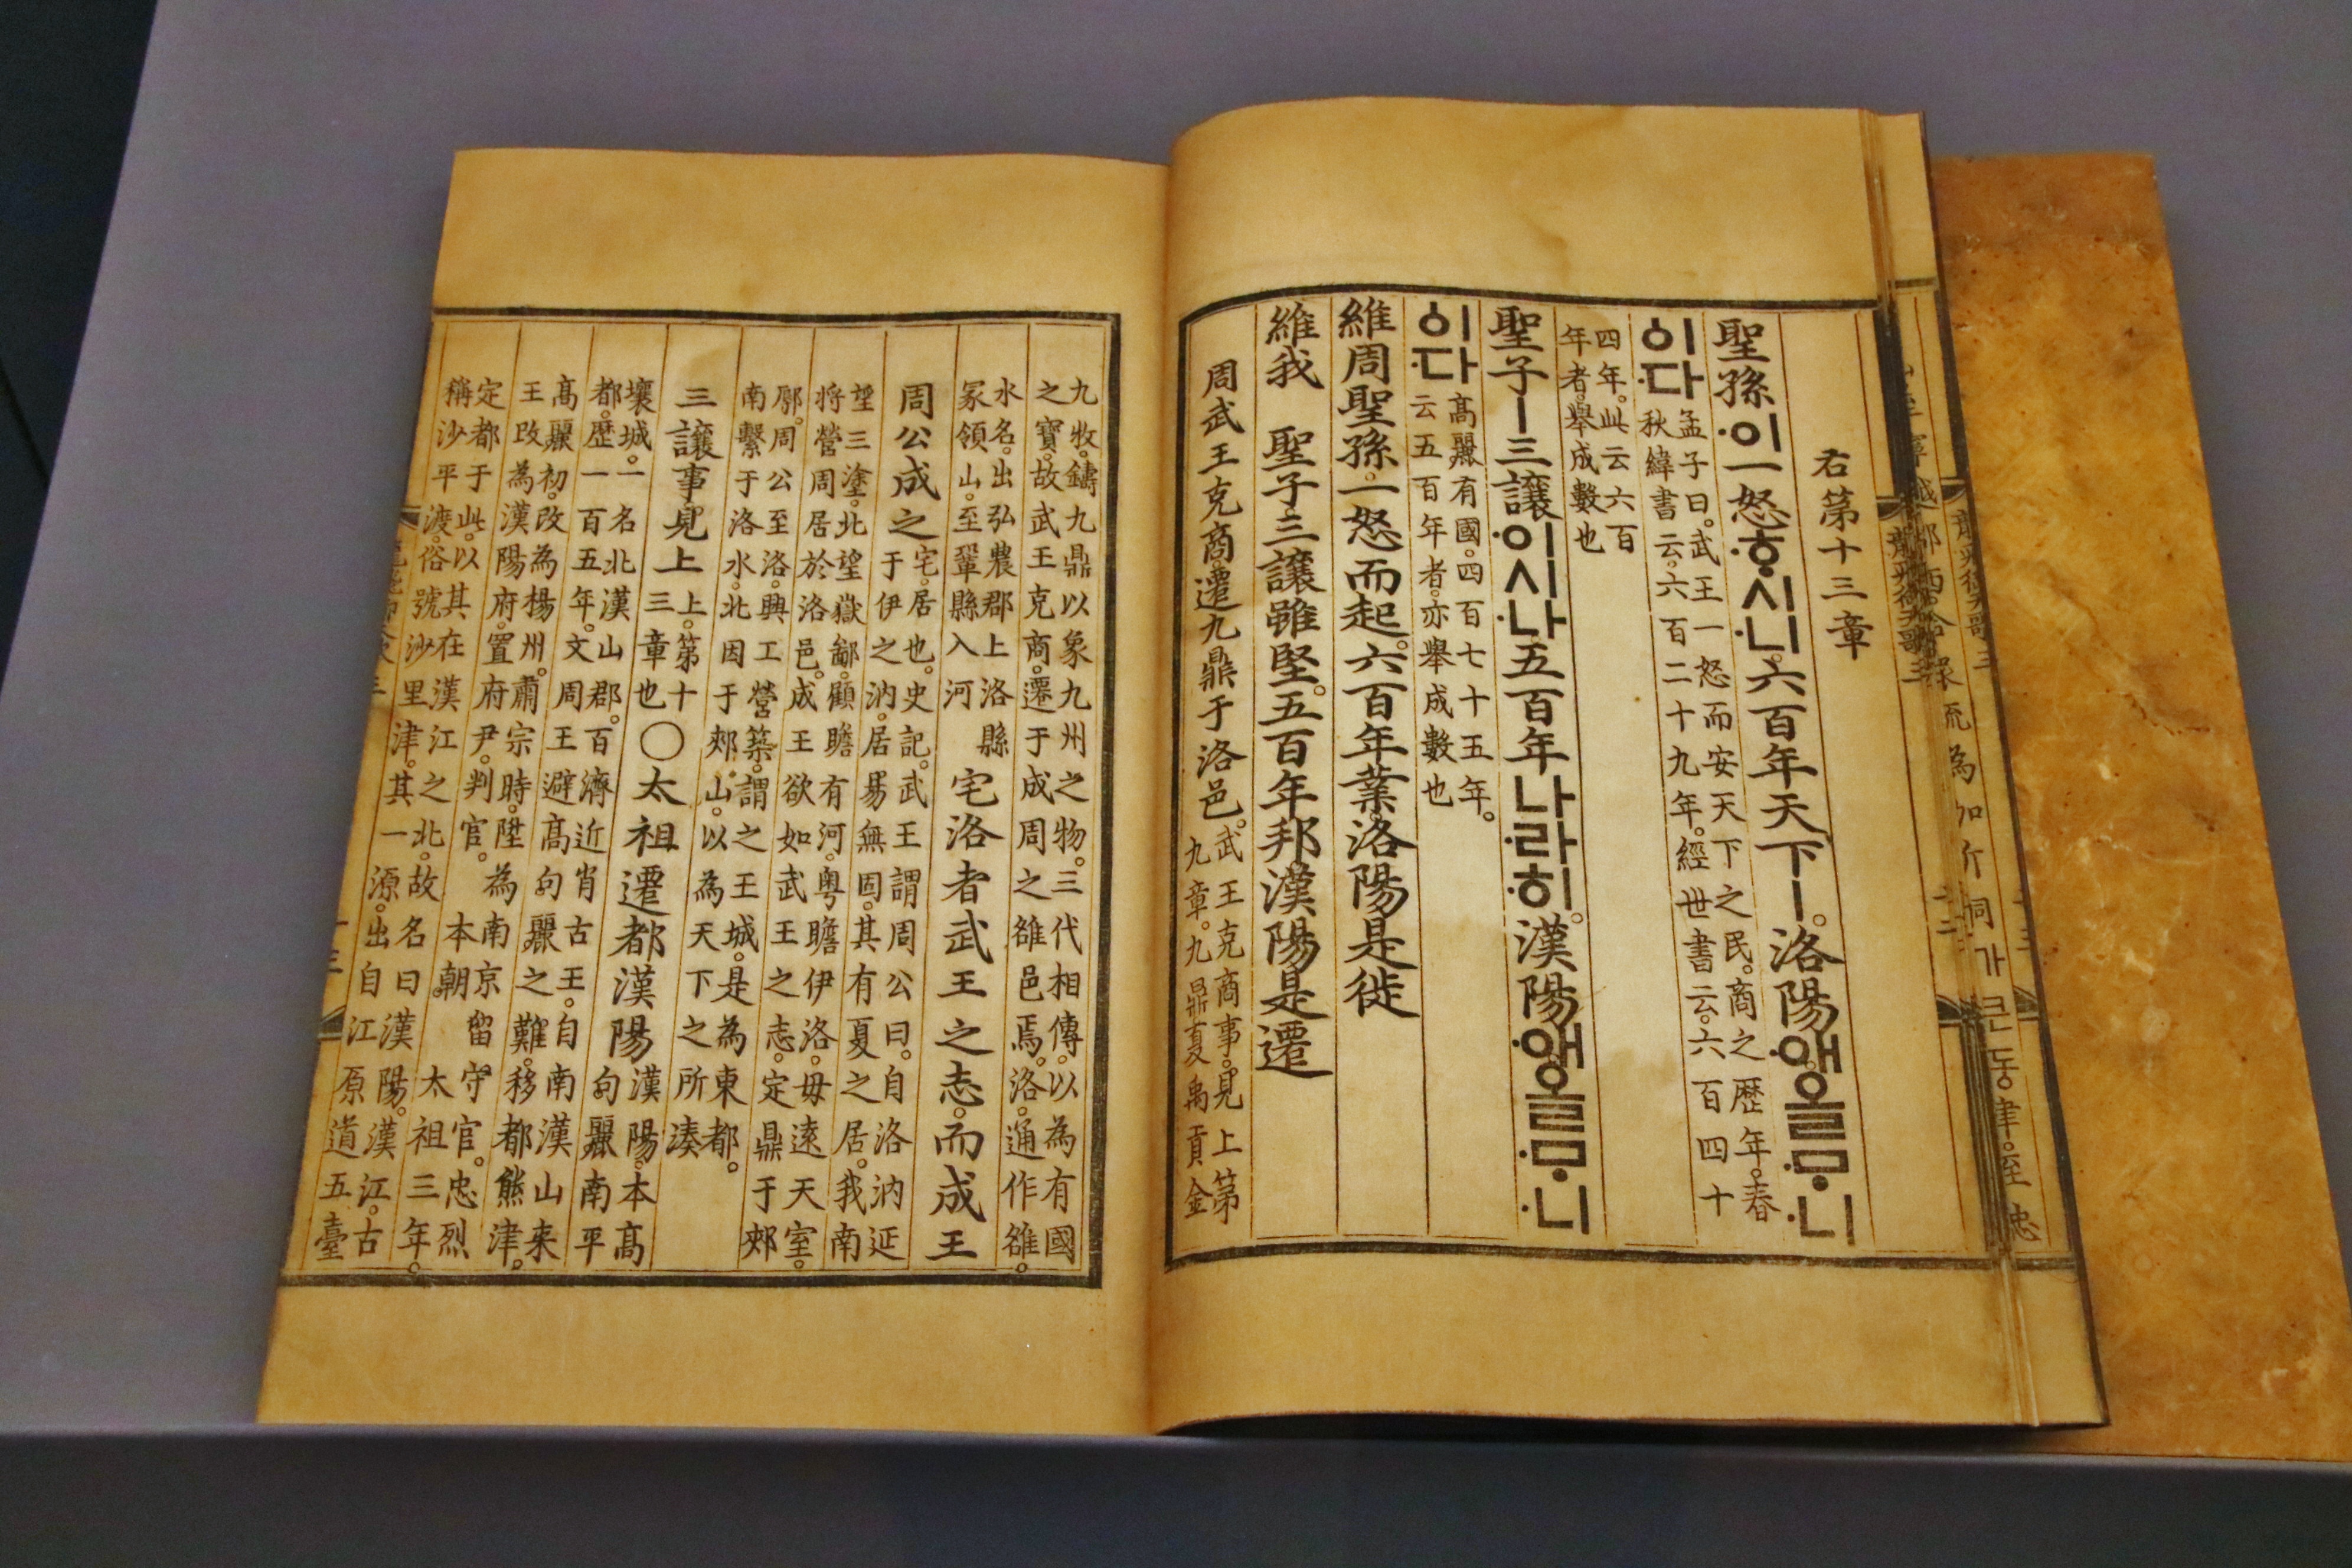 龍飛御天歌三
右第十三章
聖孫·이一怒·ᄒᆞ·시·니。六百年天下ㅣ。洛陽·애올ᄆᆞ·니
·이·다孟子曰。武王一怒而安天下之民。商之歷年。春
秋緯書云。六百二十九年。經世書云。六百四十
四年。此云六百
年者。舉成數也
聖子ㅣ三讓·이·시·나五百年나·라·히。漢陽·애올ᄆᆞ·니
·이·다高麗有國。四百七十五年。
云五百年者。亦舉成數也
維周聖孫。一怒而起。六百年業。洛陽是徙
維我 聖子。三讓雖堅。五百年邦。漢陽是遷
周武王克商。遷九鼎于洛邑。武王克商事。見上第
九章。九鼎夏禹貢金
九牧。鑄九鼎以象九州之物。三代相傳。以為有國
之寶。故武王克商。遷于成周之雒邑焉。洛。通作雒。
水名。出弘農郡上洛縣
冢領山。至鞏縣入河
宅洛者武王之志。而成王
周公成之宅。居也。史記。武王謂周公曰。自洛汭延
于伊之汭。居易無固。其有夏之居。我南
望三塗。北望嶽鄙。顧瞻有河。粵瞻伊洛。毋遠天室。
將營周居於洛邑。成王欲如武王之志。定鼎于郟
鄏。周公至洛。興工營築。謂之王城。是為東都。
南繫于洛水。北因于郟山。以為天下之所湊
三讓事。見上上。第十
三章也
○太祖遷都漢陽漢陽。本高
句麗南平
壤城。一名北漢山郡。百濟近肖古王。自南漢山来
都。歷一百五年。文周王避高句麗之難。移都熊津。
高麗初。改為楊州。肅宗時。陞為南京留守官。忠烈
王改為漢陽府。置府尹。判官。本朝 太祖三年。
定都于此。以其在漢江之北。故名曰漢陽。漢江。古
稱沙平渡。俗號沙里津。其一源。出自江原道五臺